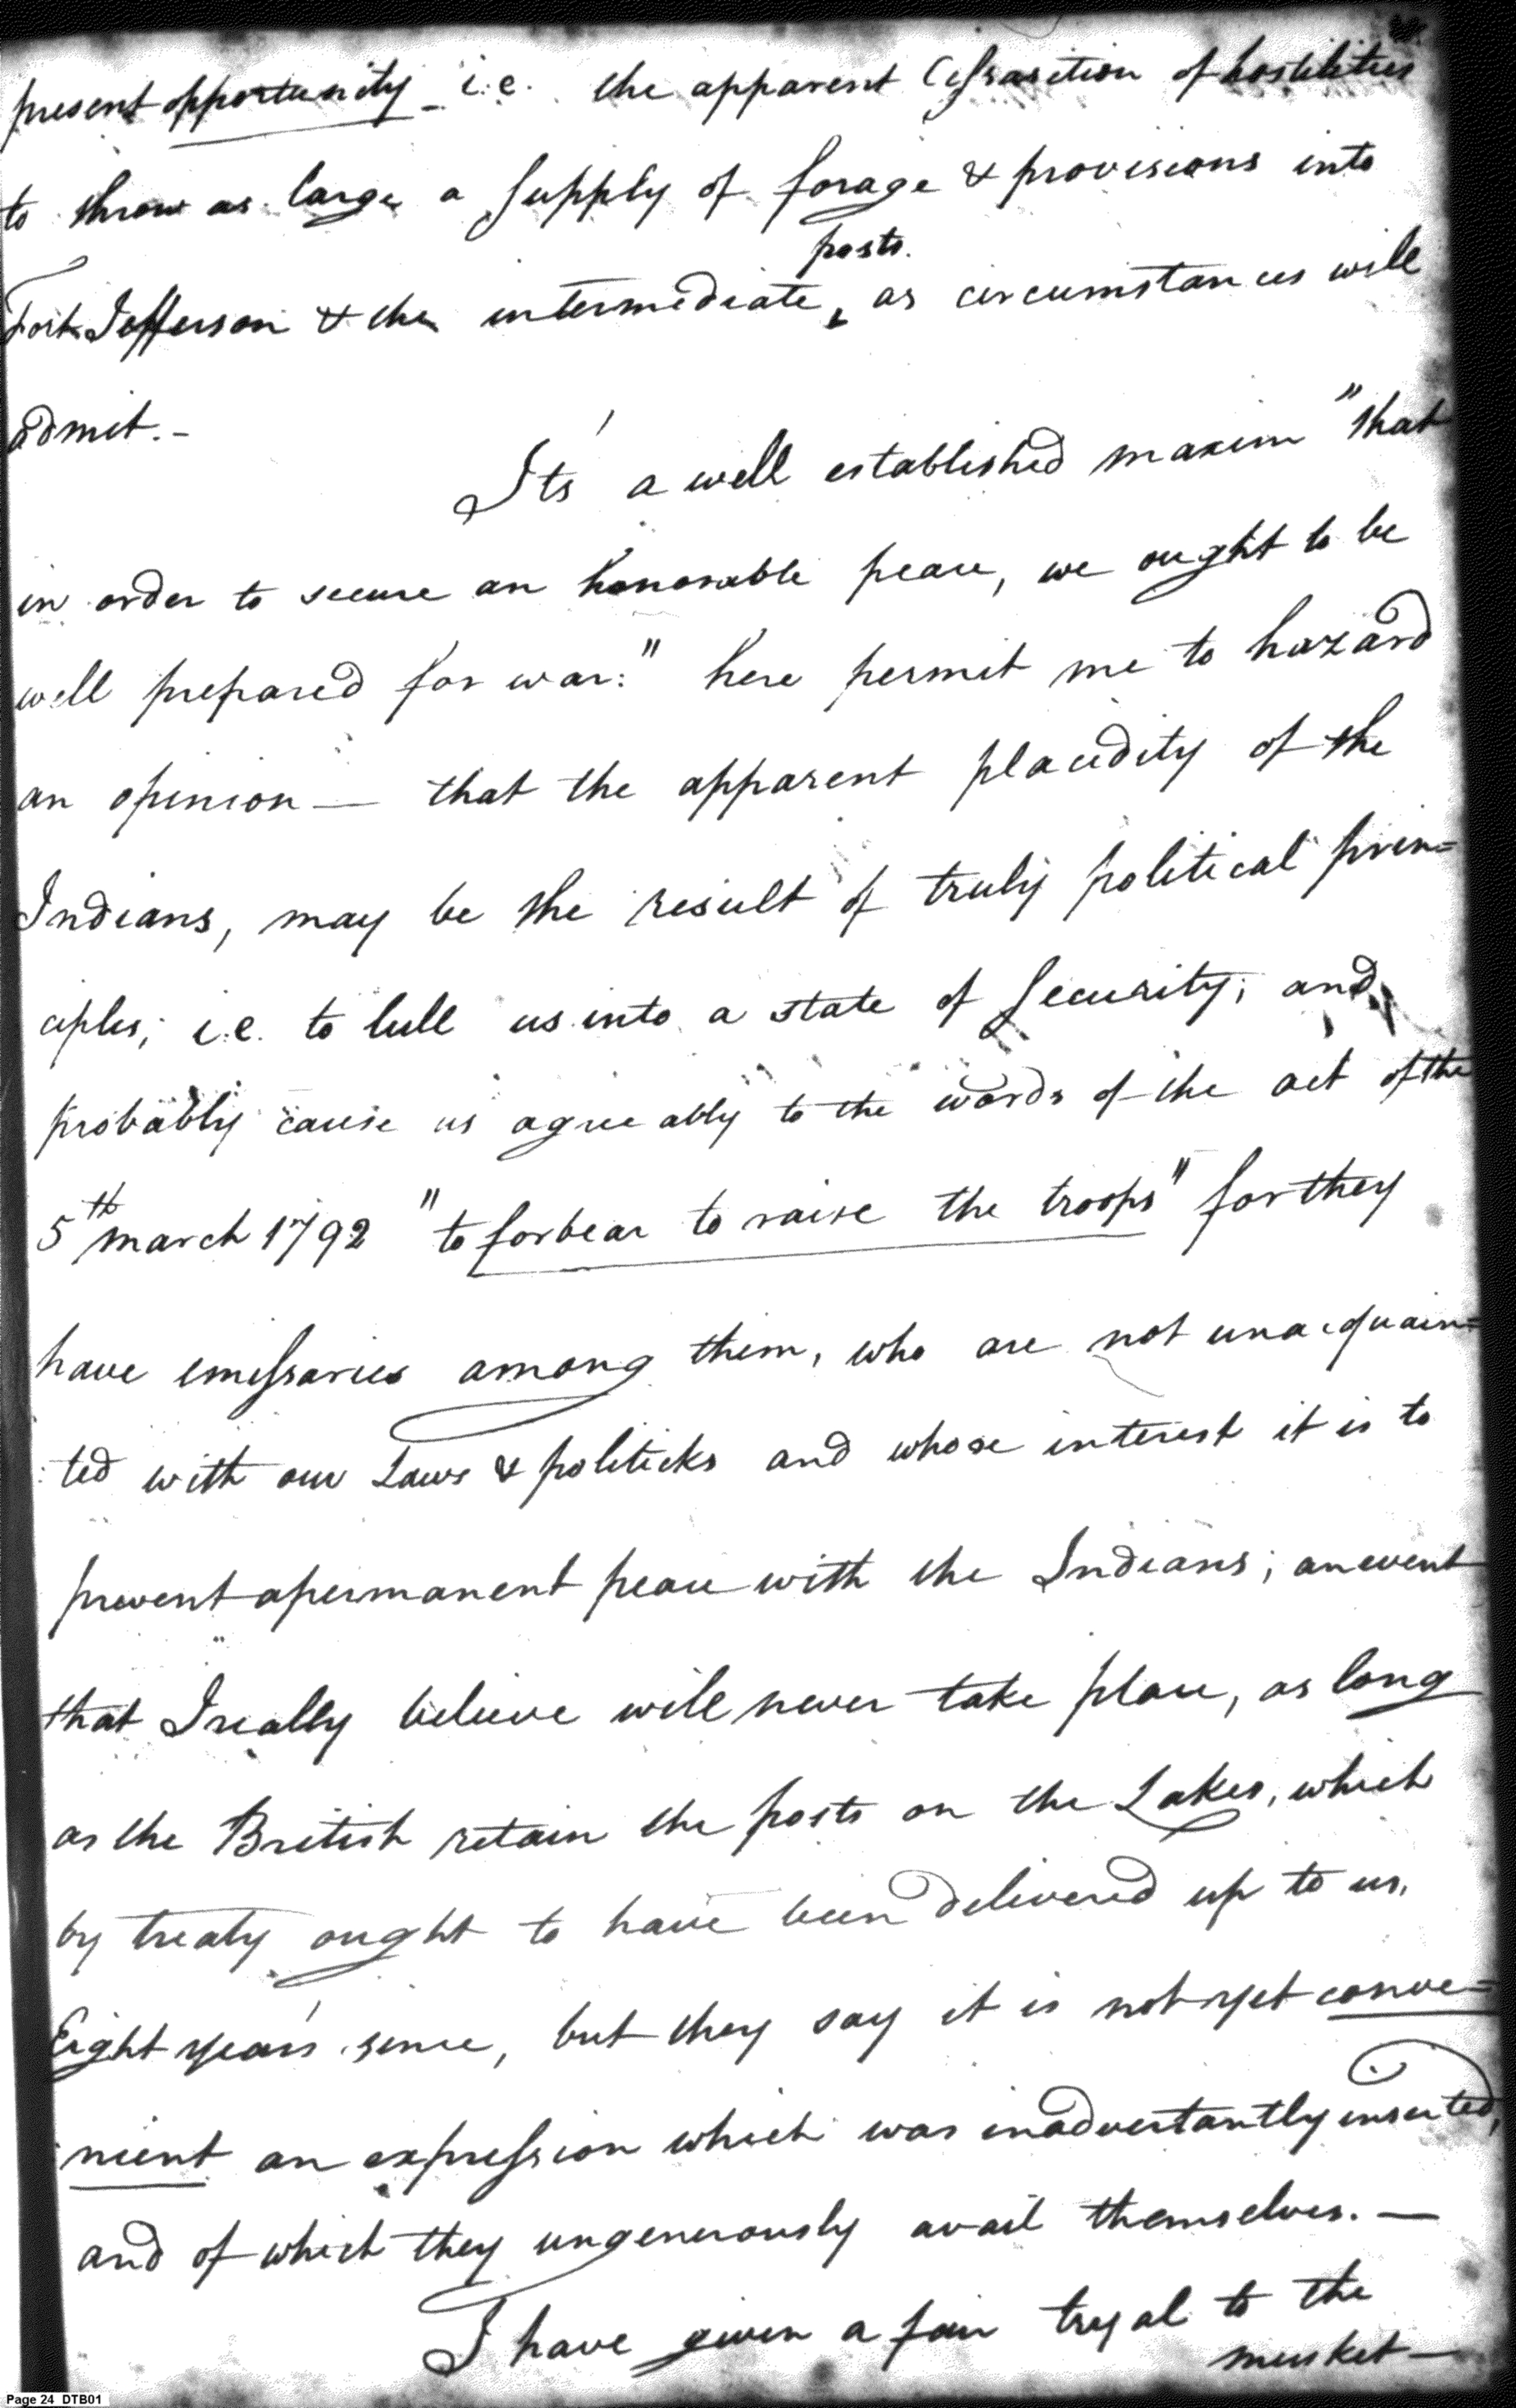 present opportunity – i.e. the apparent Cessasition of hostilities
to throw as large a Supply of forage & provisions into
posts.
Fort Jefferson & the intermediate ‸ as circumstances will
admit. –
Its' a well established maxim "that
in order to secure an honorable peace, we ought to be
well prepared for war:" here permit me to hazard
an opinion — that the apparent placidity of the
Indians, may be the result of truly political prin=
ciples; i.e. to lull us into a state of Security; and
probably cause us agreeably to the words of the act of the
5th march 1792 "to forbear to raise the troops" for they
have emissaries among them, who are not unacquain=
:ted with our Laws & politicks and whose interest it is to
prevent a permanent peace with the Indians; an event
that I really believe will never take place, as long
as the British retain the posts on the Lakes, which
by treaty ought to have been delivered up to us,
Eight years' since, but they say it is not yet conve=
nient an expression which was inadvertantly inserted,
and of which they ungenerously avail themselves. —
I have given a fair tryal to the
musket —
Page 24 DTB01